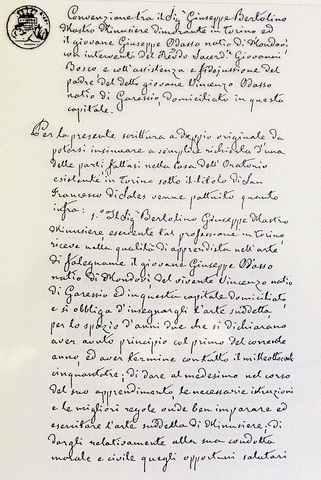 Convenzione tra il Sig.r Giuseppe Bertolino
Mastro Minusiere dimorante in Torino ed
il giovane Giuseppe Odasso natio di Mondovì,
con intervento del Rev.do Sacerd. Giovanni
Bosco e coll'assistenza e fidejussione del
padre del detto giovane Vincenzo Odasso
natio di Garessio, domiciliato in questa
capitale.
Per la presente scrittura a doppio originale da
potersi insinuare a semplice richiesta d'una
delle parti, fattasi nella Casa dell'Oratorio
esistente in Torino sotto il titolo di San
Francesco di Sales venne pattuito quanto
infra: 1.o Il Sig.r Bertolino Giuseppe Mastro
Minusiere, esercente tal professione in Torino,
riceve nella qualità di apprendista nell'arte
di falegname il giovane Giuseppe Odasso
natio di Mondovì, del vivente Vincenzo natio
di Garessio ed in questa capitale domiciliato,
e si obbliga d'insegnargli l'arte suddetta,
per lo spazio d'anni due che si dichiarano
aver avuto principio col primo del corrente
anno, ed aver termine con tutto il milleottocento
cinquantatre; di dare al medesimo nel corso
del suo apprendimento, le necessarie istruzioni
e le migliori regole onde ben imparare ed
esercitare l'arte suddetta di Minusiere; di
dargli relativamente alla sua condotta
morale e civile quegli opportuni salutari